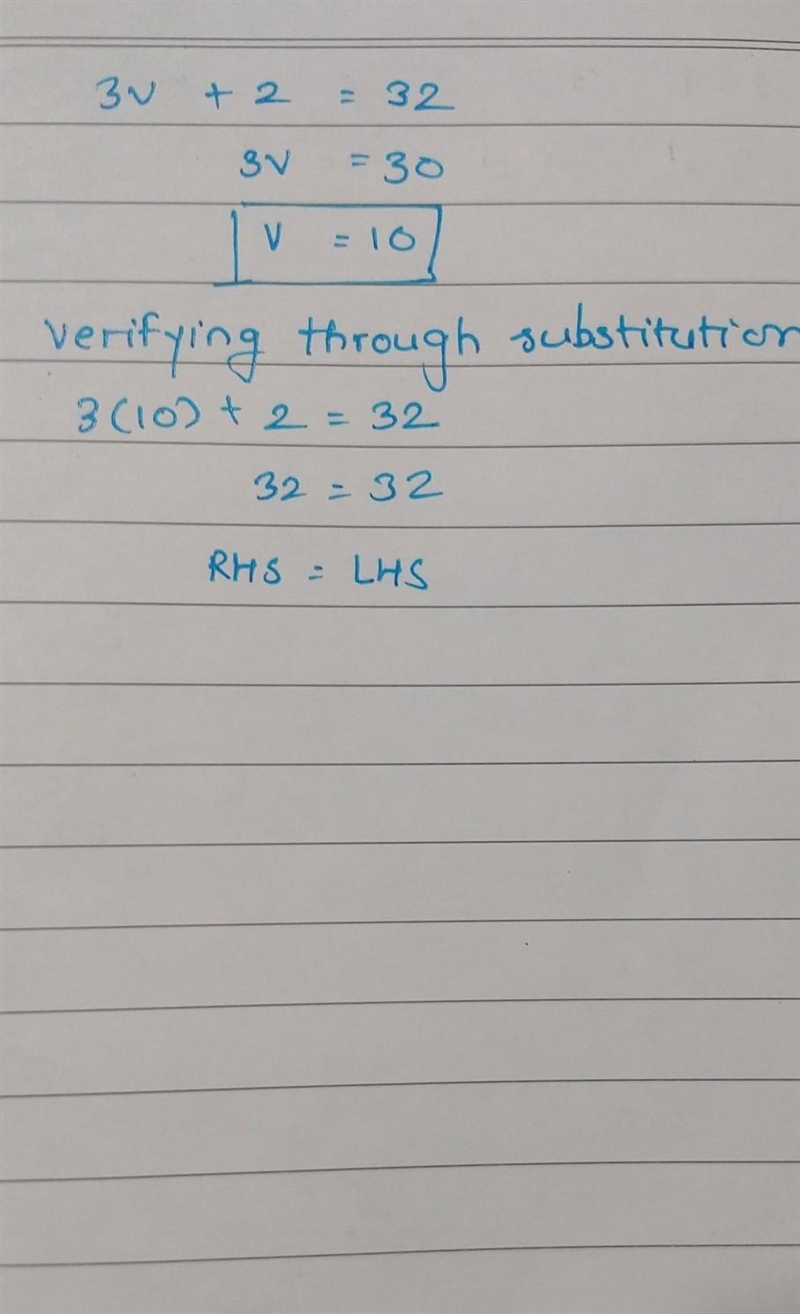 3v + 2 = 32
3v = 30
v = 10
verifying through substitution
3(10) + 2 = 32
32 = 32
RHS = LHS